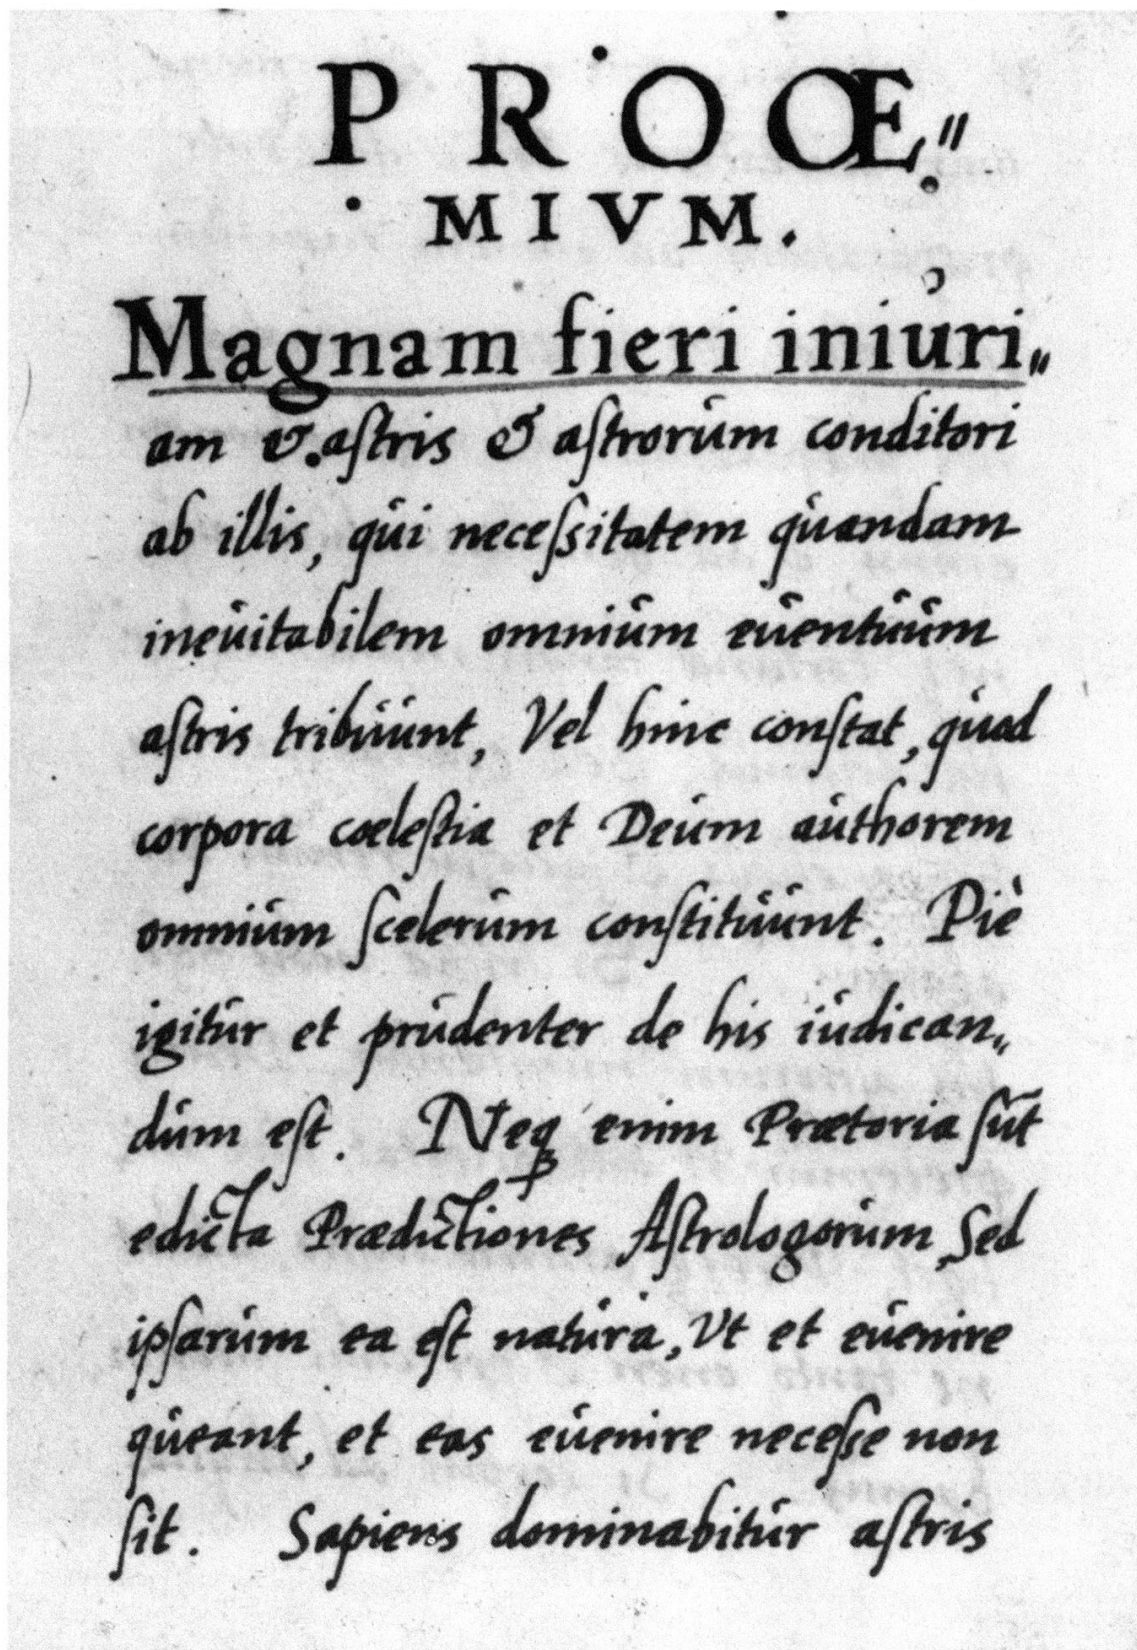 PROŒ„
MIVM.
Magnam fieri iniuri„
am & aſtris & aſtrorum conditori
ab illis, qui neceſsitatem quandam
ineuitabilem omnium euentuum
aſtris tribuunt, Vel hinc conſtat, quod
corpora cœleſtia et Deum authorem
omnium ſcelerum conſtituunt. Piè
igitur et prudenter de his iudican„
dum eſt. Neqꝫ enim Prætoria ſūt
edicta Prædictiones Aſtrologorum, Sed
ipſarum ea eſt natura, Vt et euenire
queant, et eas euenire neceſse non
ſit. Sapiens dominabitur aſtris